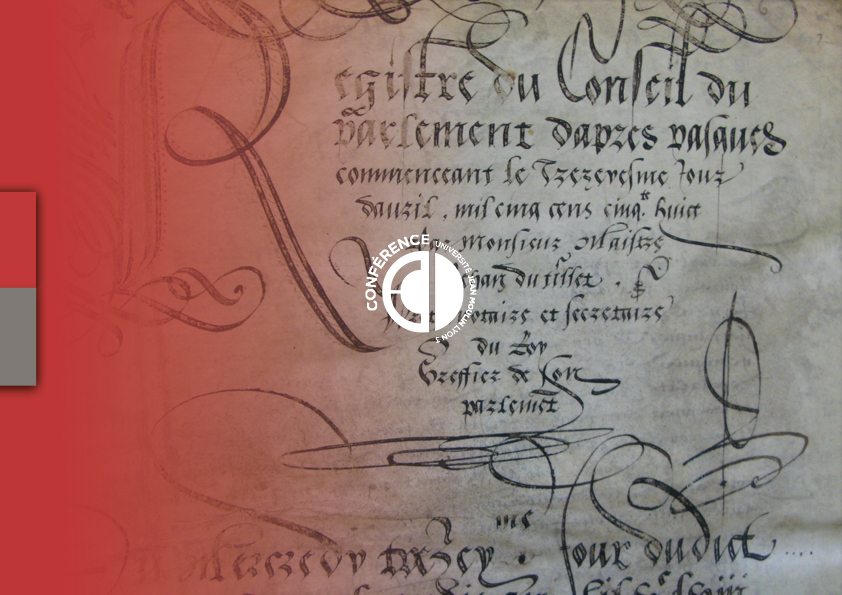 Registre du Conseil du
parlement dapres pasques
commenceant le Trezeyesme Jour
dauril . mil cinq cens cinq.te huict
Monsieur Maistre
Jehan du tillet .
notaire et secretaire
du Roy
Greffier de son
parlemēt
me
trezey . Jour dudict
CONFÉRENCE
UNIVERSITÉ JEAN MOULIN LYON 3